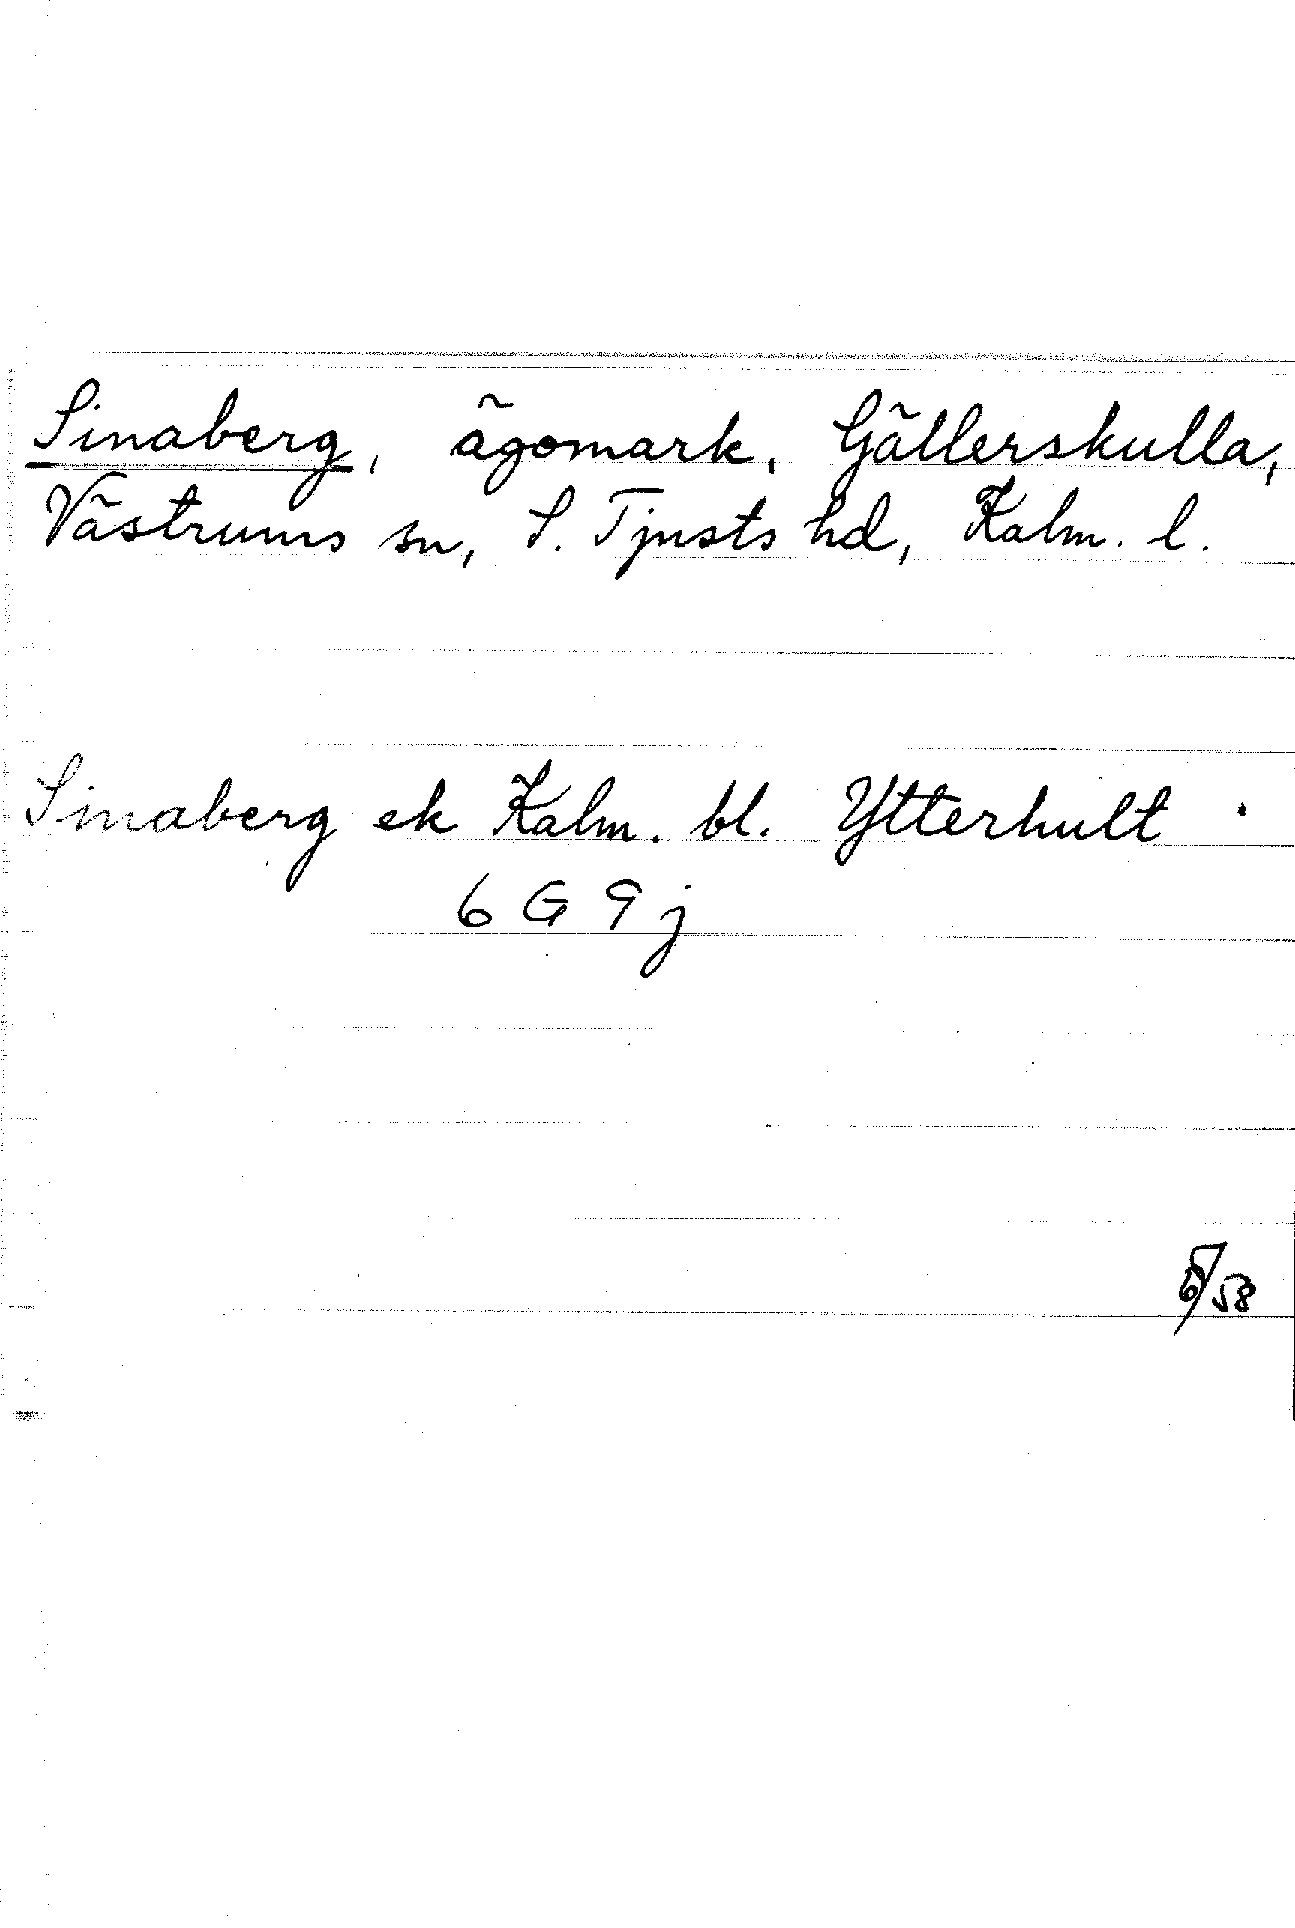 Sinaberg, ägomark, Gällerskulla,
Västrums sn, S. Tjusts hd, Kalm. l.
Sinaberg ek Kalm. bl. Ytterhult
6 G 9 j
/58